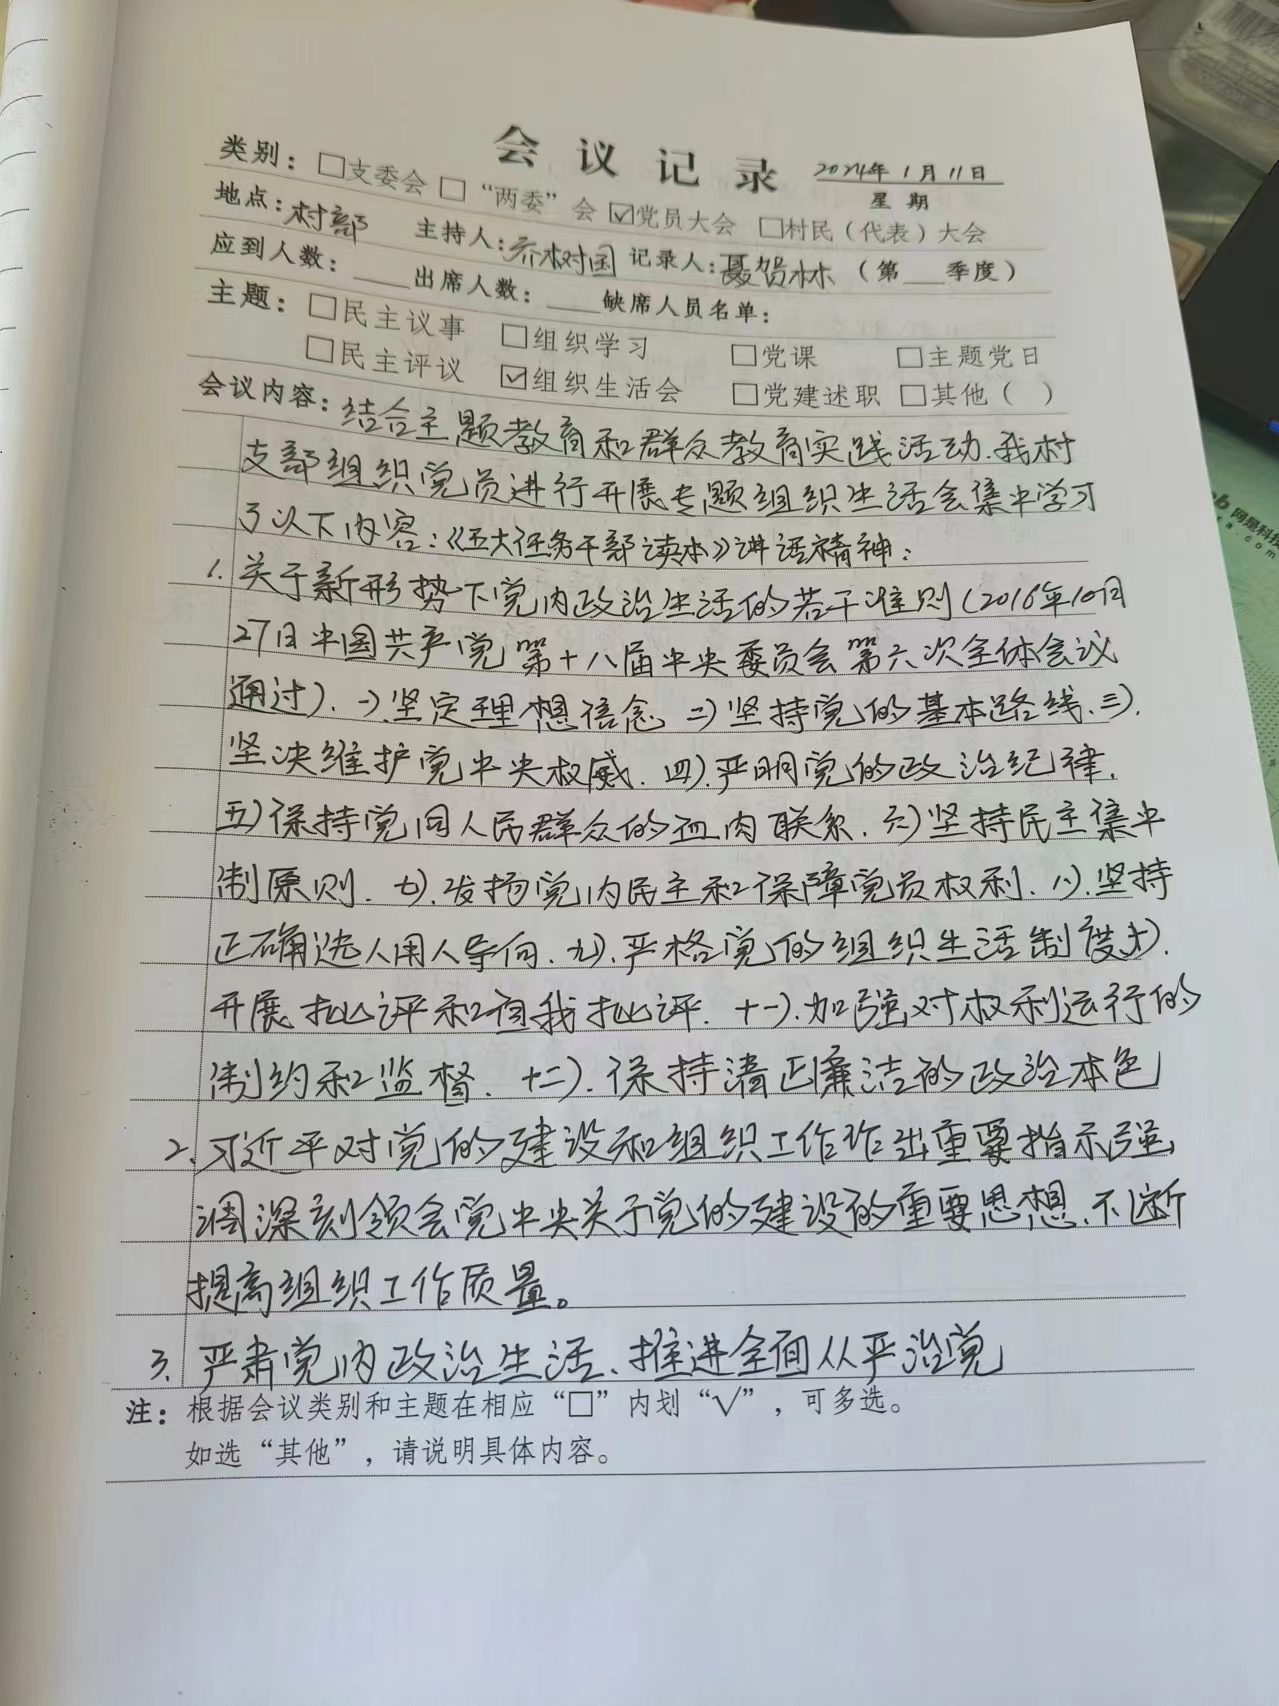 会议记录 2024年1月11日
星期
类别：□支委会 □“两委”会 ☑党员大会 □村民（代表）大会
地点：村部 主持人：乔树国 记录人：聂贺林（第___季度）
应到人数：___出席人数：___缺席人员名单：
主题：□民主议事 □组织学习 □党课 □主题党日
□民主评议 ☑组织生活会 □党建述职 □其他（ ）
会议内容：结合主题教育和群众教育实践活动.我村
支部组织党员进行开展专题组织生活会集中学习
了以下内容：《五大任务干部读本》讲话精神：
1.关于新形势下党内政治生活的若干准则（2016年10月
27日中国共产党第十八届中央委员会第六次全体会议
通过）.一）.坚定理想信念 二）坚持党的基本路线.三）.
坚决维护党中央权威.四）.严明党的政治纪律.
五）保持党同人民群众的血肉联系.六）坚持民主集中
制原则.七）.发扬党内民主和保障党员权利.八）.坚持
正确选人用人导向.九）.严格党的组织生活制度十）.
开展批评和自我批评.十一）.加强对权利运行的
制约和监督.十二）.保持清正廉洁的政治本色
2.习近平对党的建设和组织工作作出重要指示强
调深刻领会党中央关于党的建设的重要思想.不断
提高组织工作质量。
3.严肃党内政治生活、推进全面从严治党
注：根据会议类别和主题在相应“□”内划“√”，可多选。
如选“其他”，请说明具体内容。